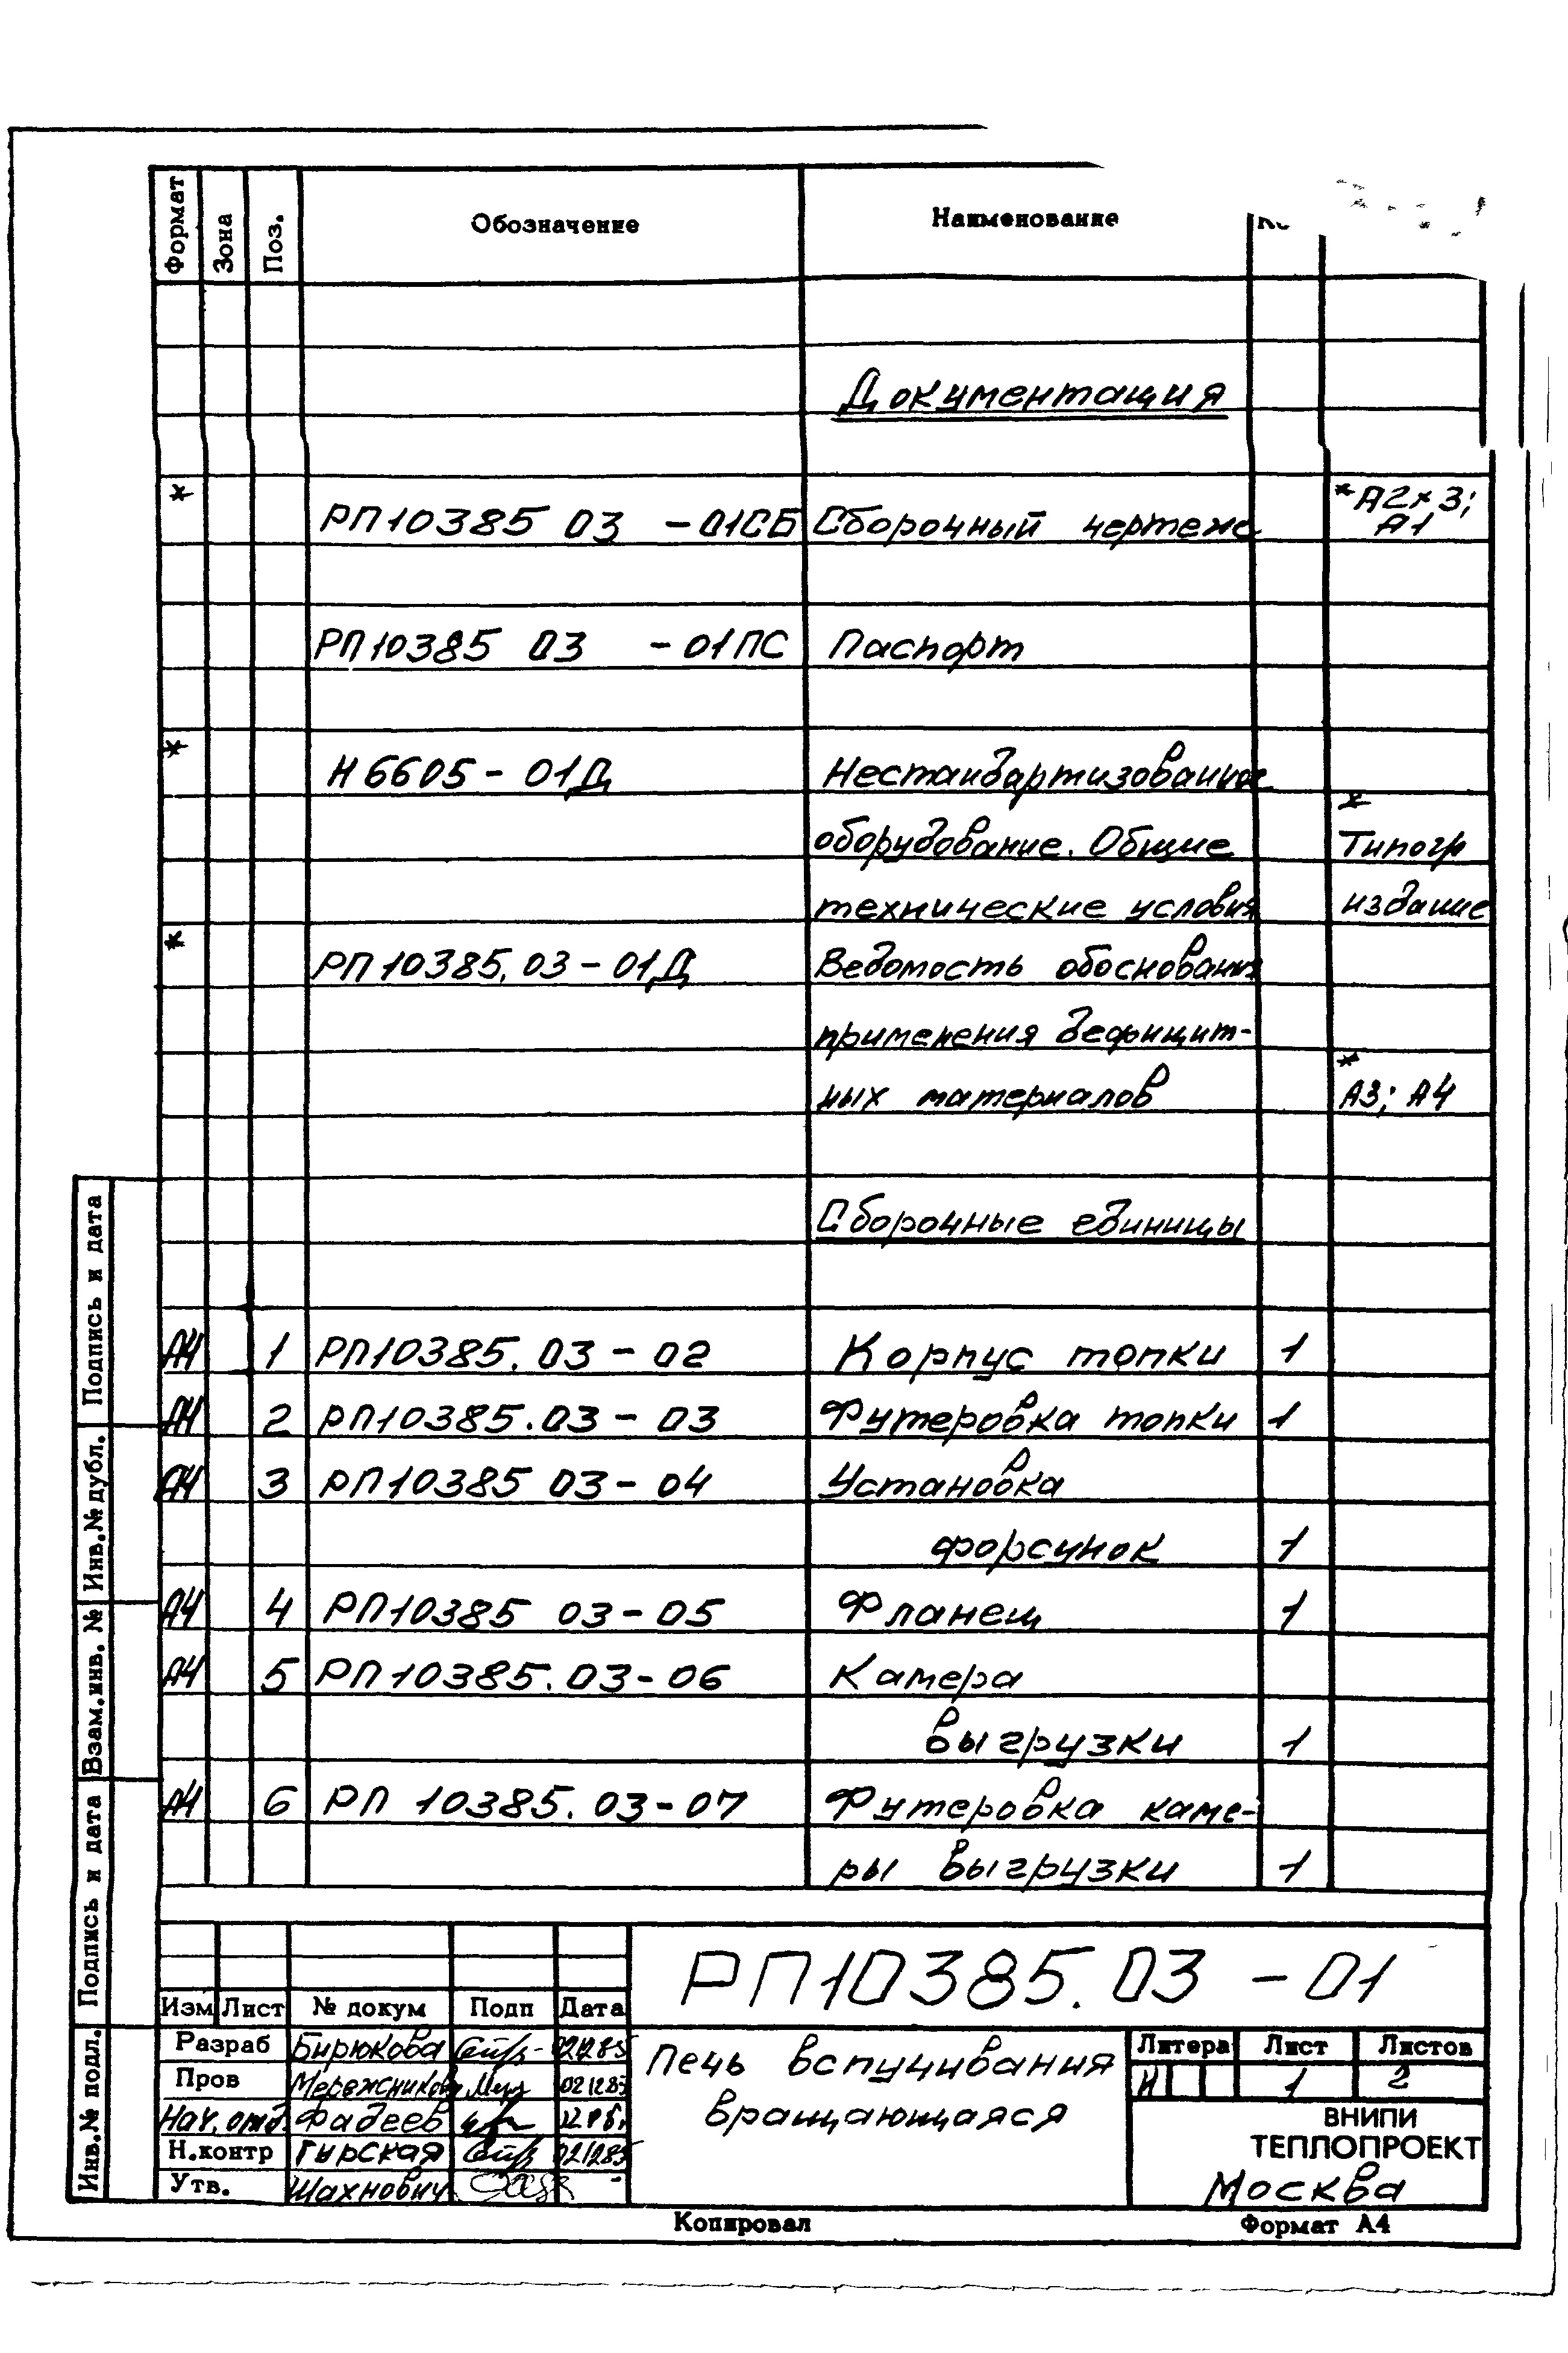 Формат Зона Поз. Обозначение Наименование
Документация
* РП10385 03 -01СБ Сборочный чертеж *А2×3;
А1
РП10385 03 -01ПС Паспорт
* Н6605-01Д Нестандартизованное
*
оборудование. Общие Типогр
технические условия издание
* РП10385.03-01Д Ведомость обоснования
применения дефицит-
*
ных материалов А3; А4
Сборочные единицы
А4 1 РП10385.03-02 Корпус топки 1
А4 2 РП10385.03-03 Футеровка топки 1
А4 3 РП10385 03-04 Установка
форсунок 1
А4 4 РП10385 03-05 Фланец 1
А4 5 РП10385.03-06 Камера
выгрузки 1
А4 6 РП 10385.03-07 Футеровка каме-
ры выгрузки 1
Подпись и дата
Инв.№ дубл.
Взам.инв. №
Подпись и дата
Инв.№ подл.
РП10385.03 -01
Изм Лист № докум Подп Дата
Разраб Бирюкова 021285
Пров Мережникова 021285
Нач. отд. Фадеев
Н.контр Гурская 021285
Утв. Шахнович
Печь вспучивания
вращающаяся
Литера Лист Листов
И 1 2
ВНИПИ
ТЕПЛОПРОЕКТ
Москва
Копировал Формат А4